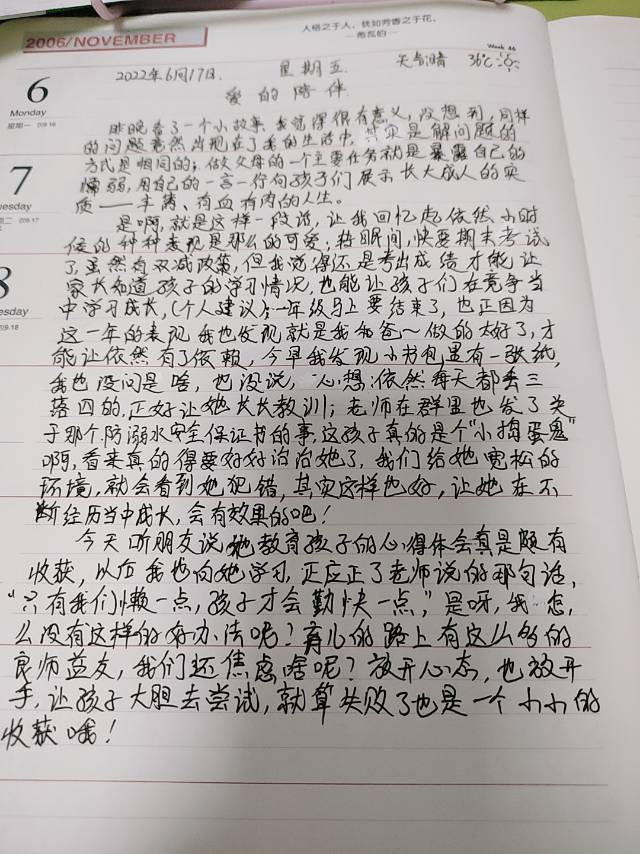 人格之于人，犹如芳香之于花。
—弗瓦伯—
2006/NOVEMBER
Week 46
6
Monday
星期一 09.16
7
uesday
二 09.17
8
09.18
2022年6月17日. 星期五 天气晴 36℃
爱的陪伴
昨晚看了一个小故事，我觉得很有意义，没想到，同样
的问题竟然出现在了我的生活中，其实是解问题的
方式是相同的；做父母的一个主要任务就是暴露自己的
懦弱，用自己的一言一行向孩子们展示长大成人的实
质——丰满、有血有肉的人生。
是啊，就是这样一段话，让我回忆起依然小时
候的种种表现是那么的可爱；转眼间，快要期末考试
了，虽然有双减政策，但我觉得还是考出成绩才能让
家长知道孩子的学习情况，也能让孩子们在竞争当
中学习成长，(个人建议)；一年级马上要结束了，也正因为
这一年的表现我也发现就是我和爸~做的太好了，才
能让依然有了依赖，今早我发现小书包里有一张纸，
我也没问是啥，也没说，心想：依然每天都丢三
落四的，正好让她长长教训；老师在群里也发了关
于那个防溺水安全保证书的事，这孩子真的是个“小捣蛋鬼”
啊，看来真的得要好好治治她了，我们给她宽松的
环境，就会看到她犯错，其实这样也好，让她在不
断经历当中成长，会有效果的吧！
今天听朋友说她教育孩子的心得体会真是颇有
收获，以后我也向她学习，正应正了老师说的那句话，
“只有我们懒一点，孩子才会勤快一点，”是呀，我怎
么没有这样的好办法呢？育儿的路上有这么多的
良师益友，我们还焦虑啥呢？放开心态，也放开
手，让孩子大胆去尝试，就算失败了也是一个小小的
收获哦！